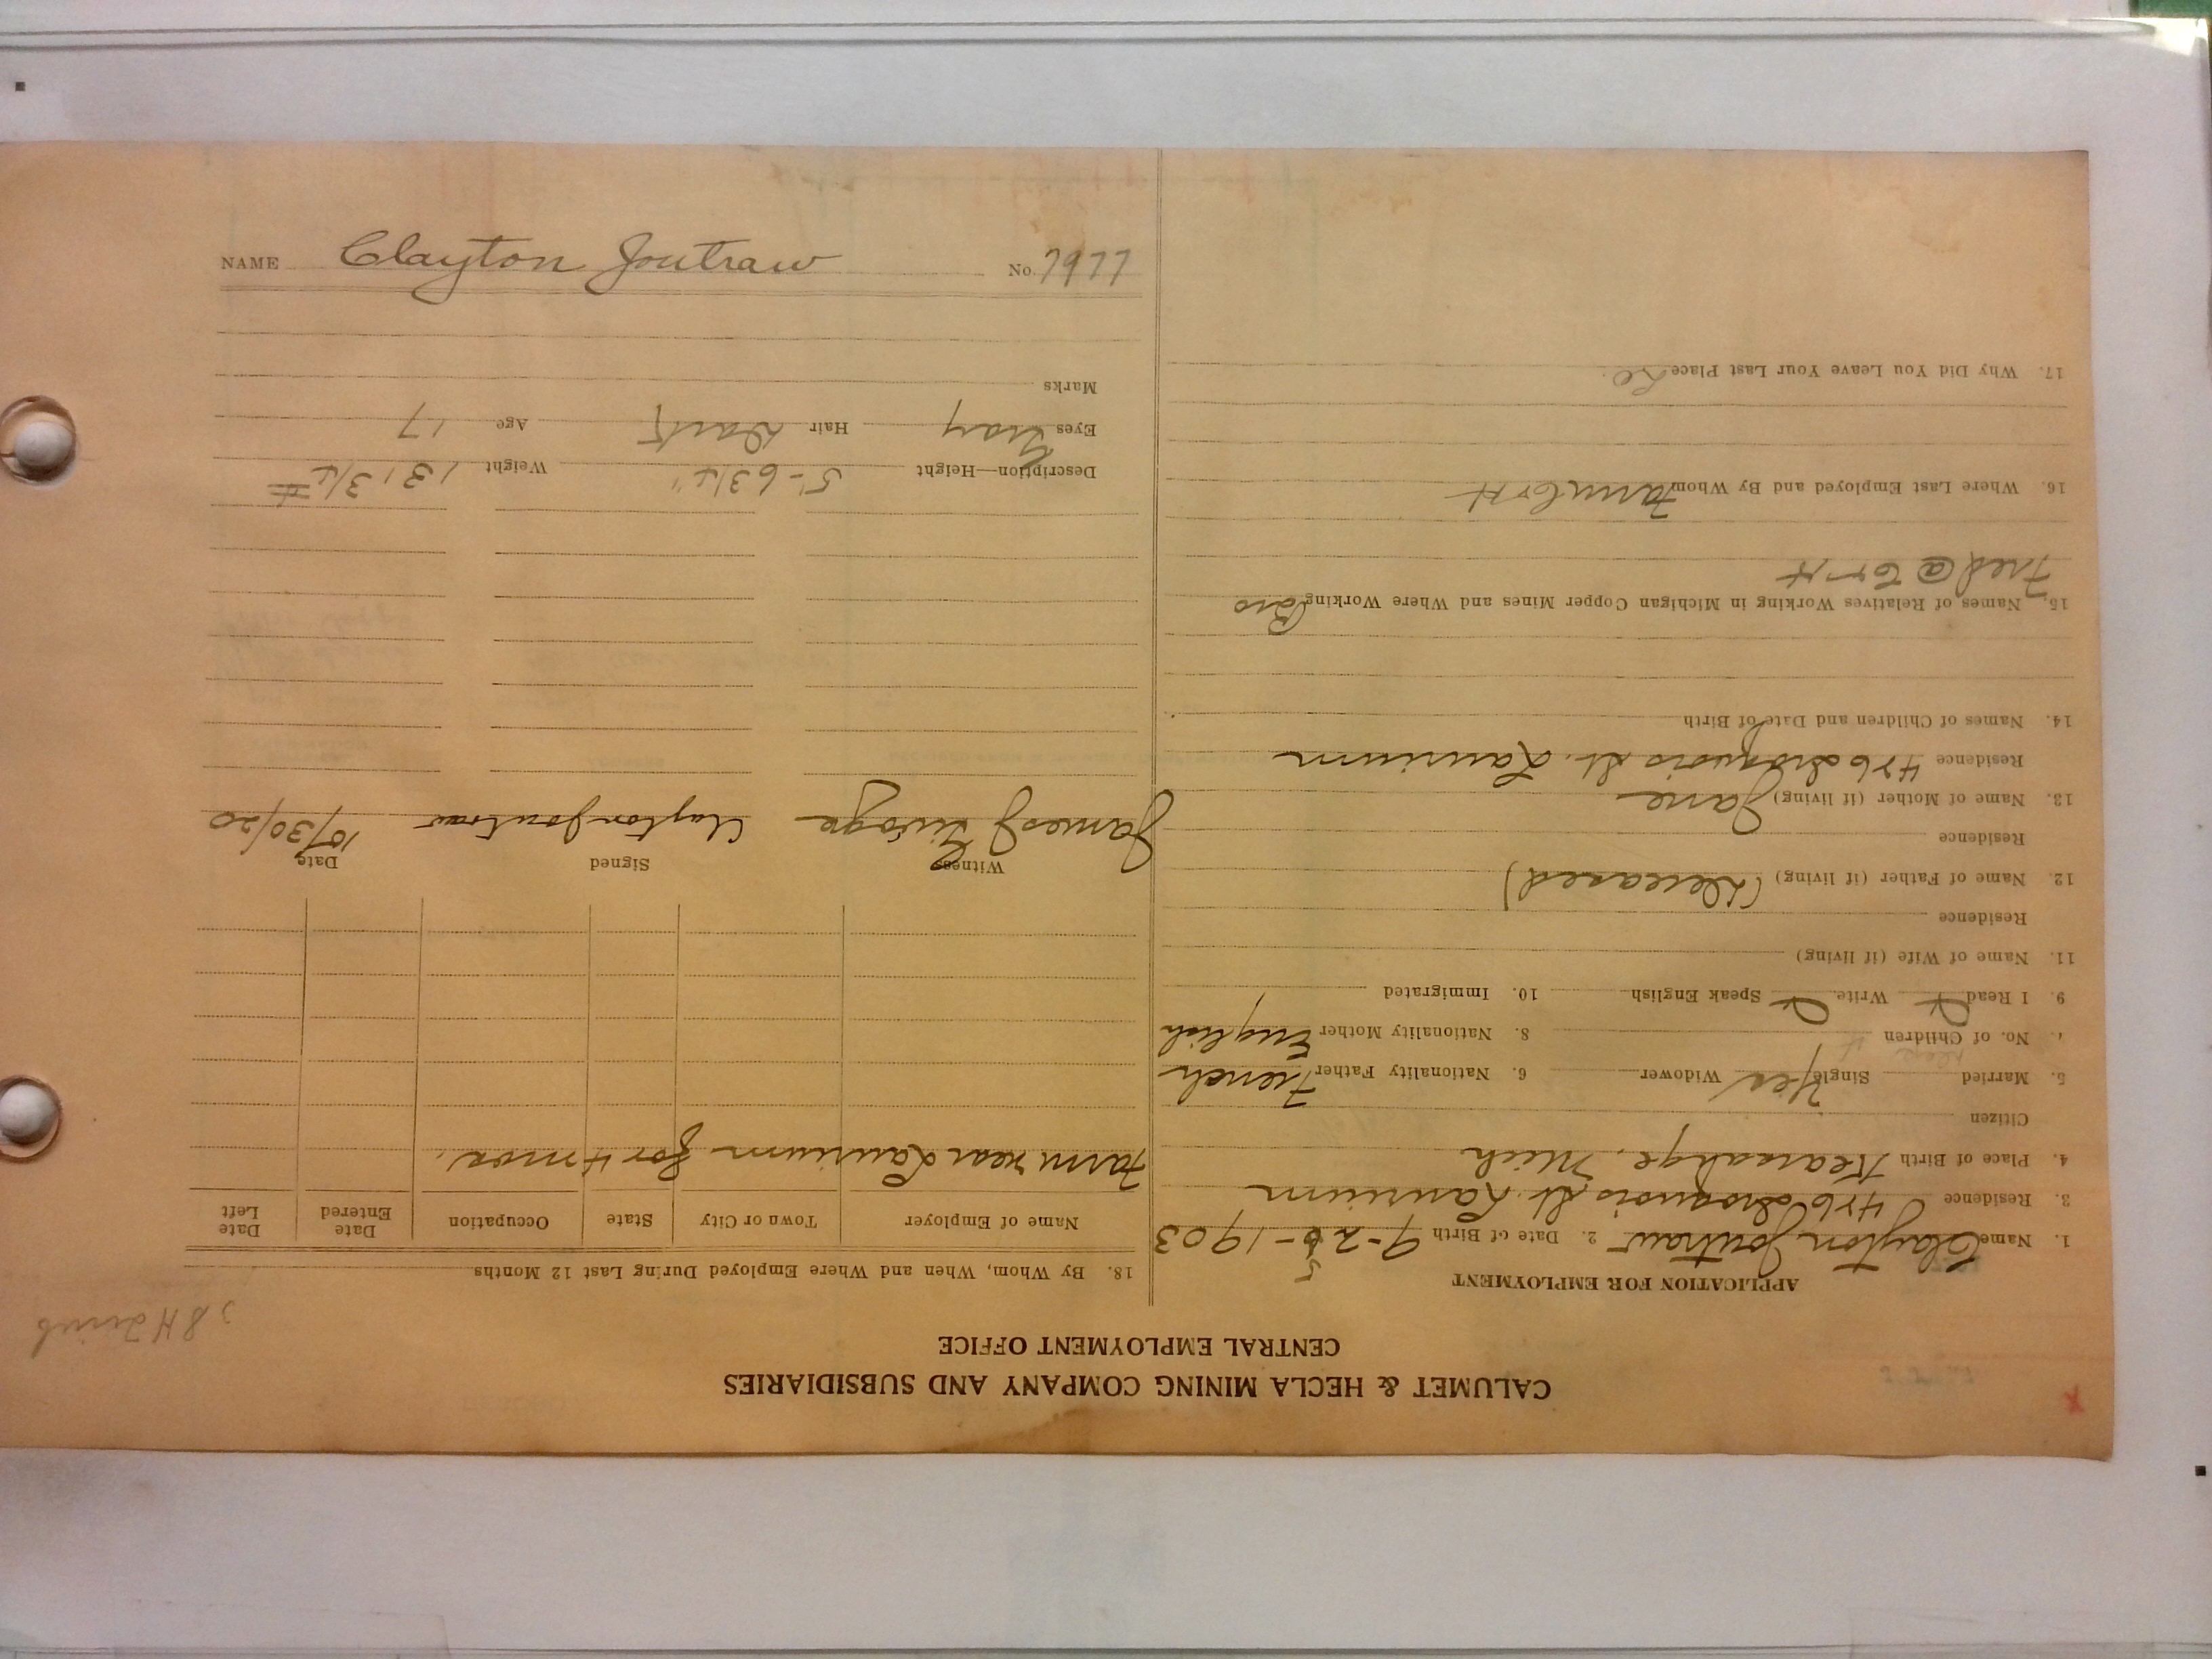 CALUMET & HECLA MINING COMPANY AND SUBSIDIARIES
CENTRAL EMPLOYMENT OFFICE
APPLICATION FOR EMPLOYMENT
1. Name Clayton Joutraw 2. Date of Birth 9-25-1903
3. Residence 426 Iroquois St. Laurium
4. Place of Birth Kearsarge, Mich
Citizen
5. Married Single Yes Widower 6. Nationality Father French
7. No. of Children 8. Nationality Mother English
9. I Read Write Speak English 10. Immigrated
11. Name of Wife (if living)
Residence
12. Name of Father (if living) (Deceased)
Residence
13. Name of Mother (if living) Jane
Residence 426 Iroquois St. Laurium
14. Names of Children and Date of Birth
15. Names of Relatives Working in Michigan Copper Mines and Where Working Bro
Fred @ C & H
16. Where Last Employed and By Whom Farm C & H
17. Why Did You Leave Your Last Place
18. By Whom, When and Where Employed During Last 12 Months
Name of Employer Town or City State Occupation Date Entered Date Left
Farm near Laurium for 4 mos.
Witness Signed Date
James J Clayton Joutraw 10/30/20
Description—Height 5'-6 3/4" Weight 131 3/4 #
Eyes Gray Hair Dark Age 17
Marks
NAME Clayton Joutraw No. 7977